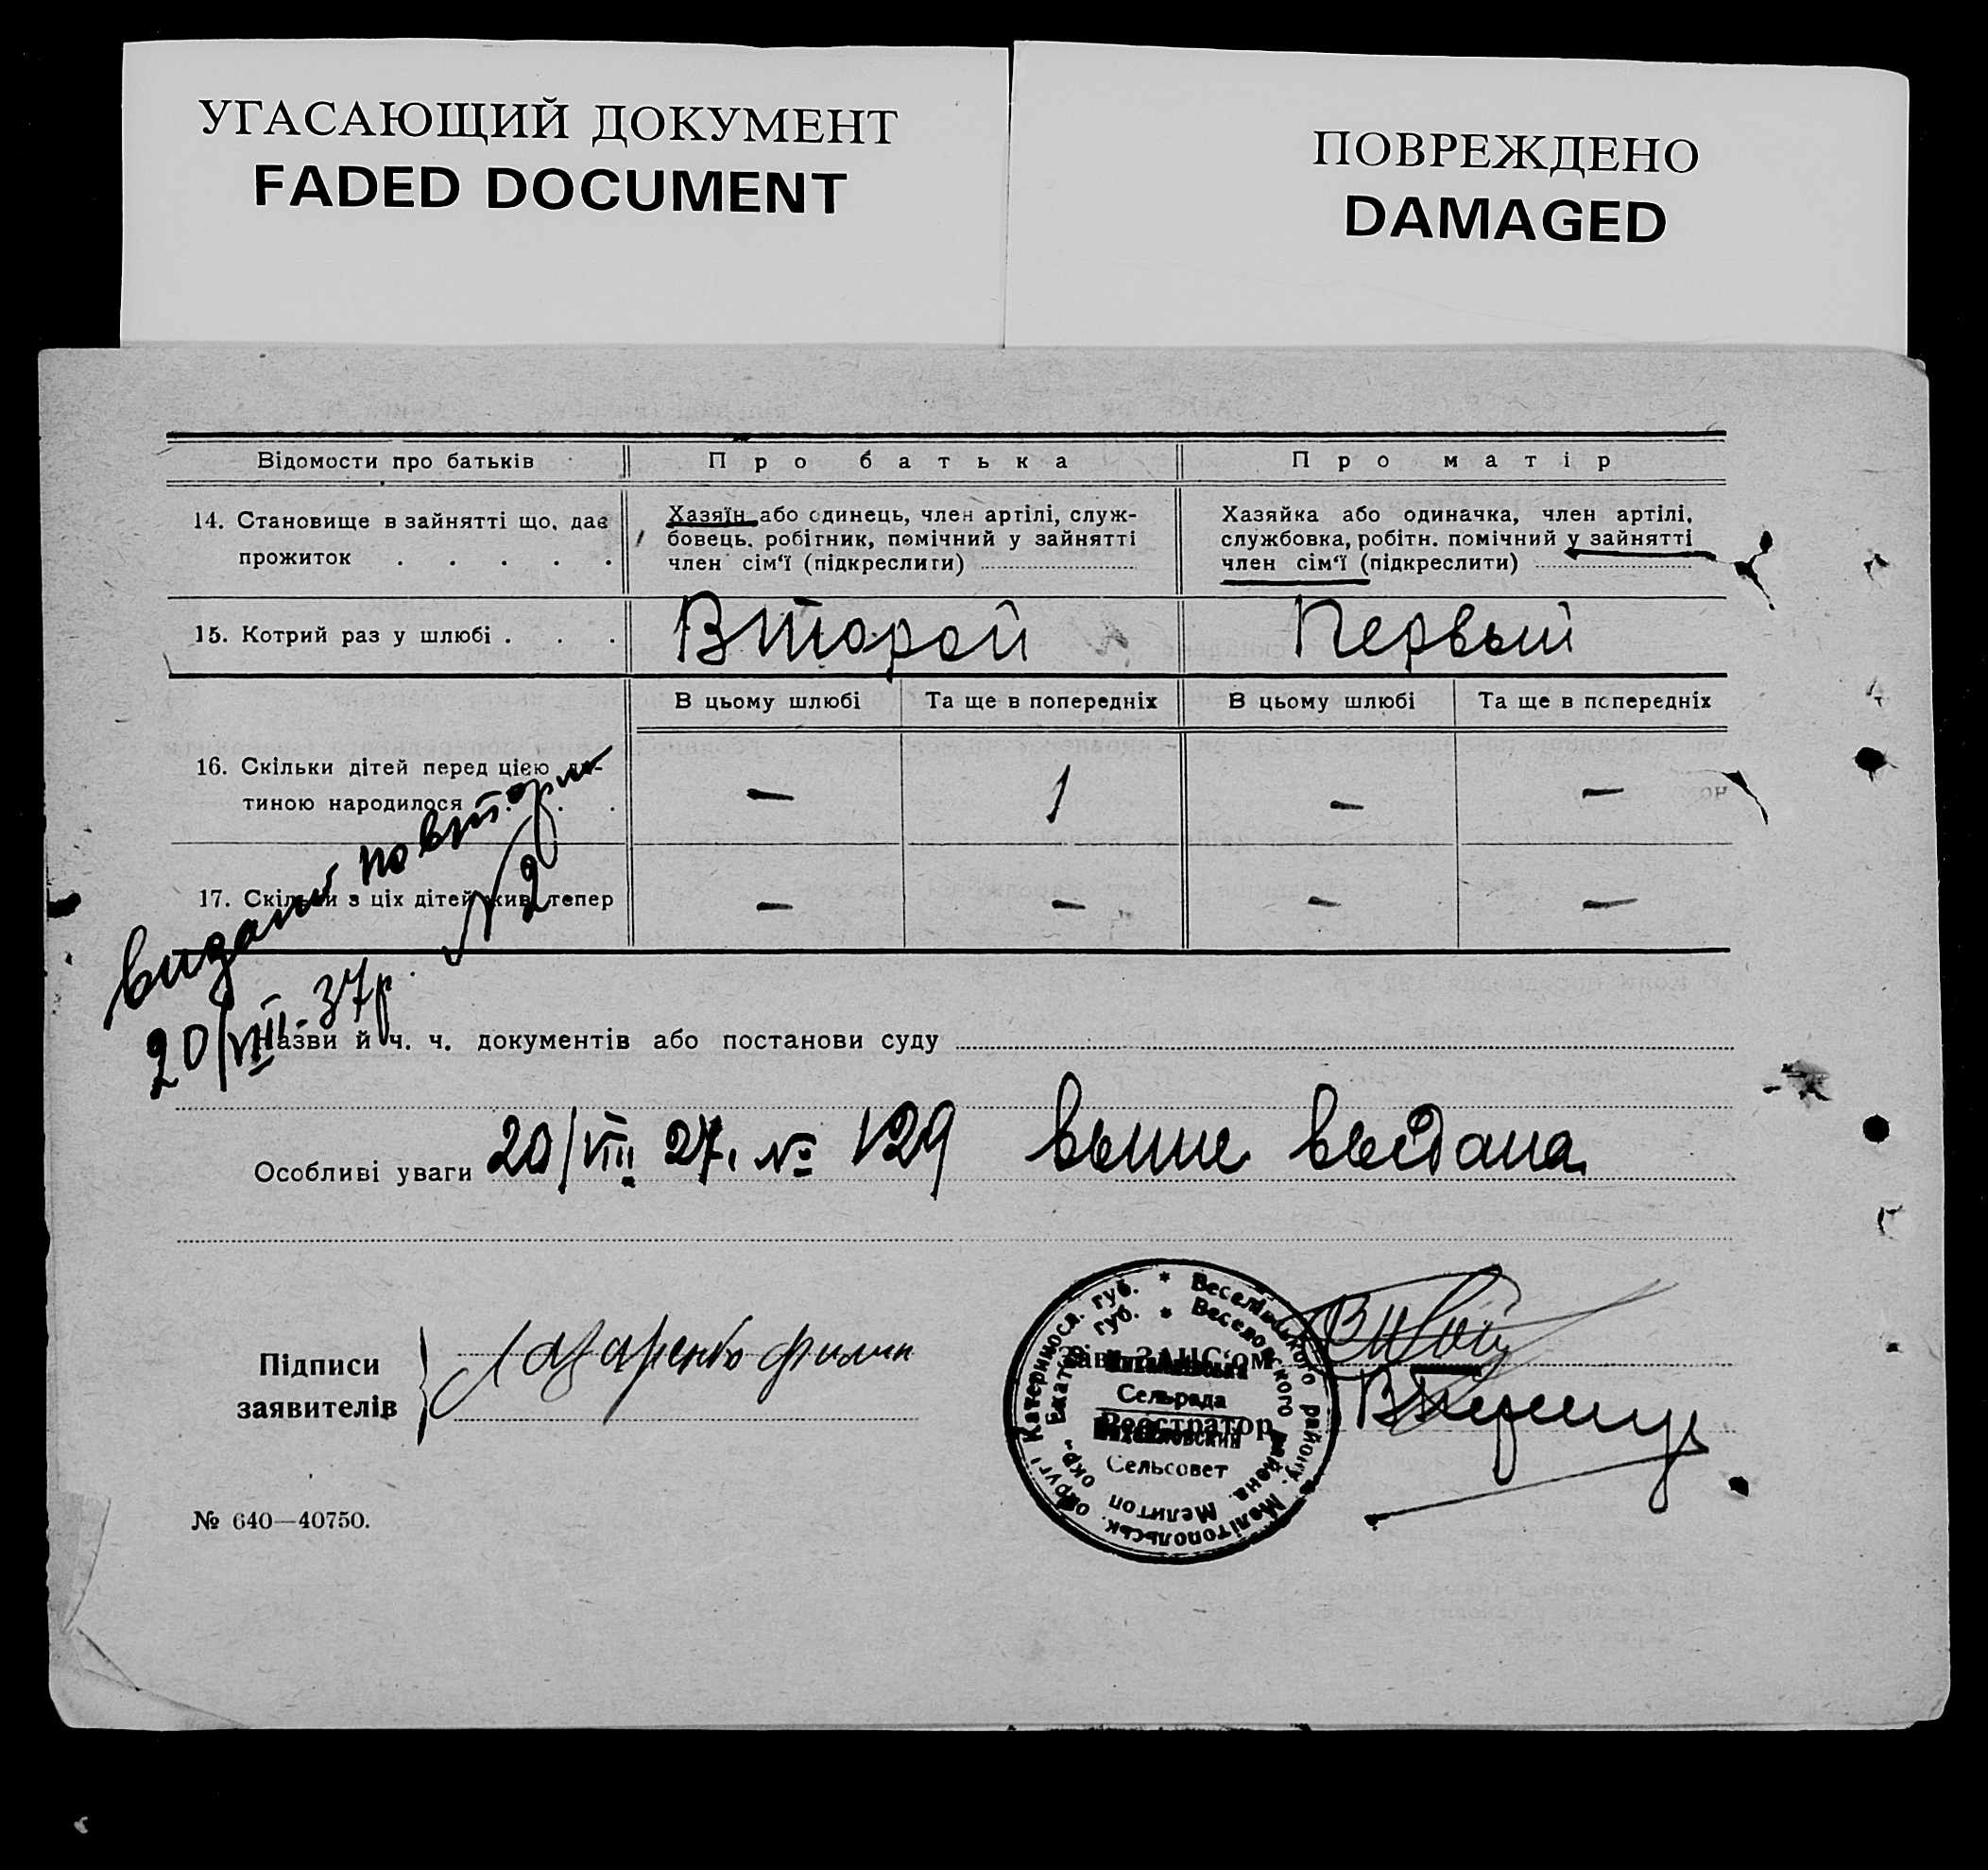 УГАСАЮЩИЙ ДОКУМЕНТ
FADED DOCUMENT
ПОВРЕЖДЕНО
DAMAGED
Відомости про батьків
Про батька
Про матір
14. Становище в зайнятті що, дає
прожиток . . . . .
Хазяїн або одинець, член артілі, служ-
бовець, робітник, помічний у зайнятті
член сім'ї (підкреслити)
Хазяйка або одиначка, член артілі,
службовка, робітн. помічний у зайнятті
член сім'ї (підкреслити)
15. Котрий раз у шлюбі . . .
Второй
Первый
В цьому шлюбі
Та ще в попередніх
В цьому шлюбі
Та ще в попередніх
16. Скільки дітей перед цією ди-
тиною народилося
— 1 — —
17. Скільки з ціх дітей живі тепер
— — — —
видані повт.
№ 2
20/VIII-37р.
Назви й ч. ч. документів або постанови суду
Особливі уваги 20/VIII 27. № 129 выдана
Підписи
заявителів
Лазаренко
Зав. ЗАГС'ом
Реєстратор
Веселівського району. Мелітопольськ. округі Катериносл. губ.
Веселовского района. Мелитоп окр. Екатер губ.
Сельрада
Сельсовет
№ 640—40750.